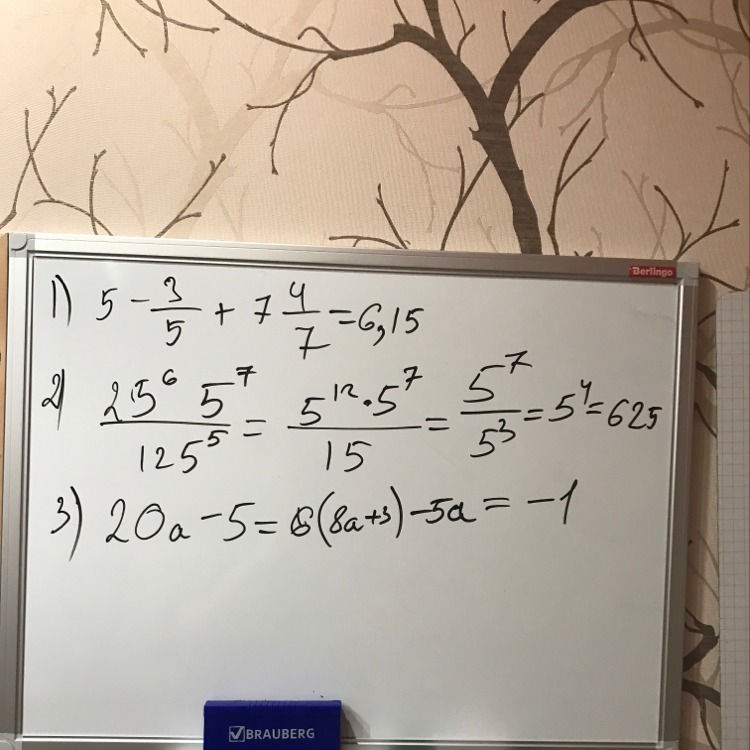 Berlingo
1) 5 - 3/5 + 7 4/7 = 6,15
2) 25⁶ 5⁷ / 125⁵ = 5¹² · 5⁷ / 15 = 5⁷ / 5³ = 5⁴ = 625
3) 20a - 5 = 6(8a+3) - 5a = -1
BRAUBERG